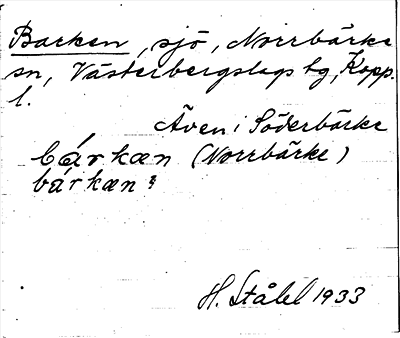 Barken, sjö, Norrbärke
sn, Västerbergslags tg, Kopp.
l.
Även i Söderbärke
bárkæn (Norrbärke)
bárkæn
H. Ståhl 1933